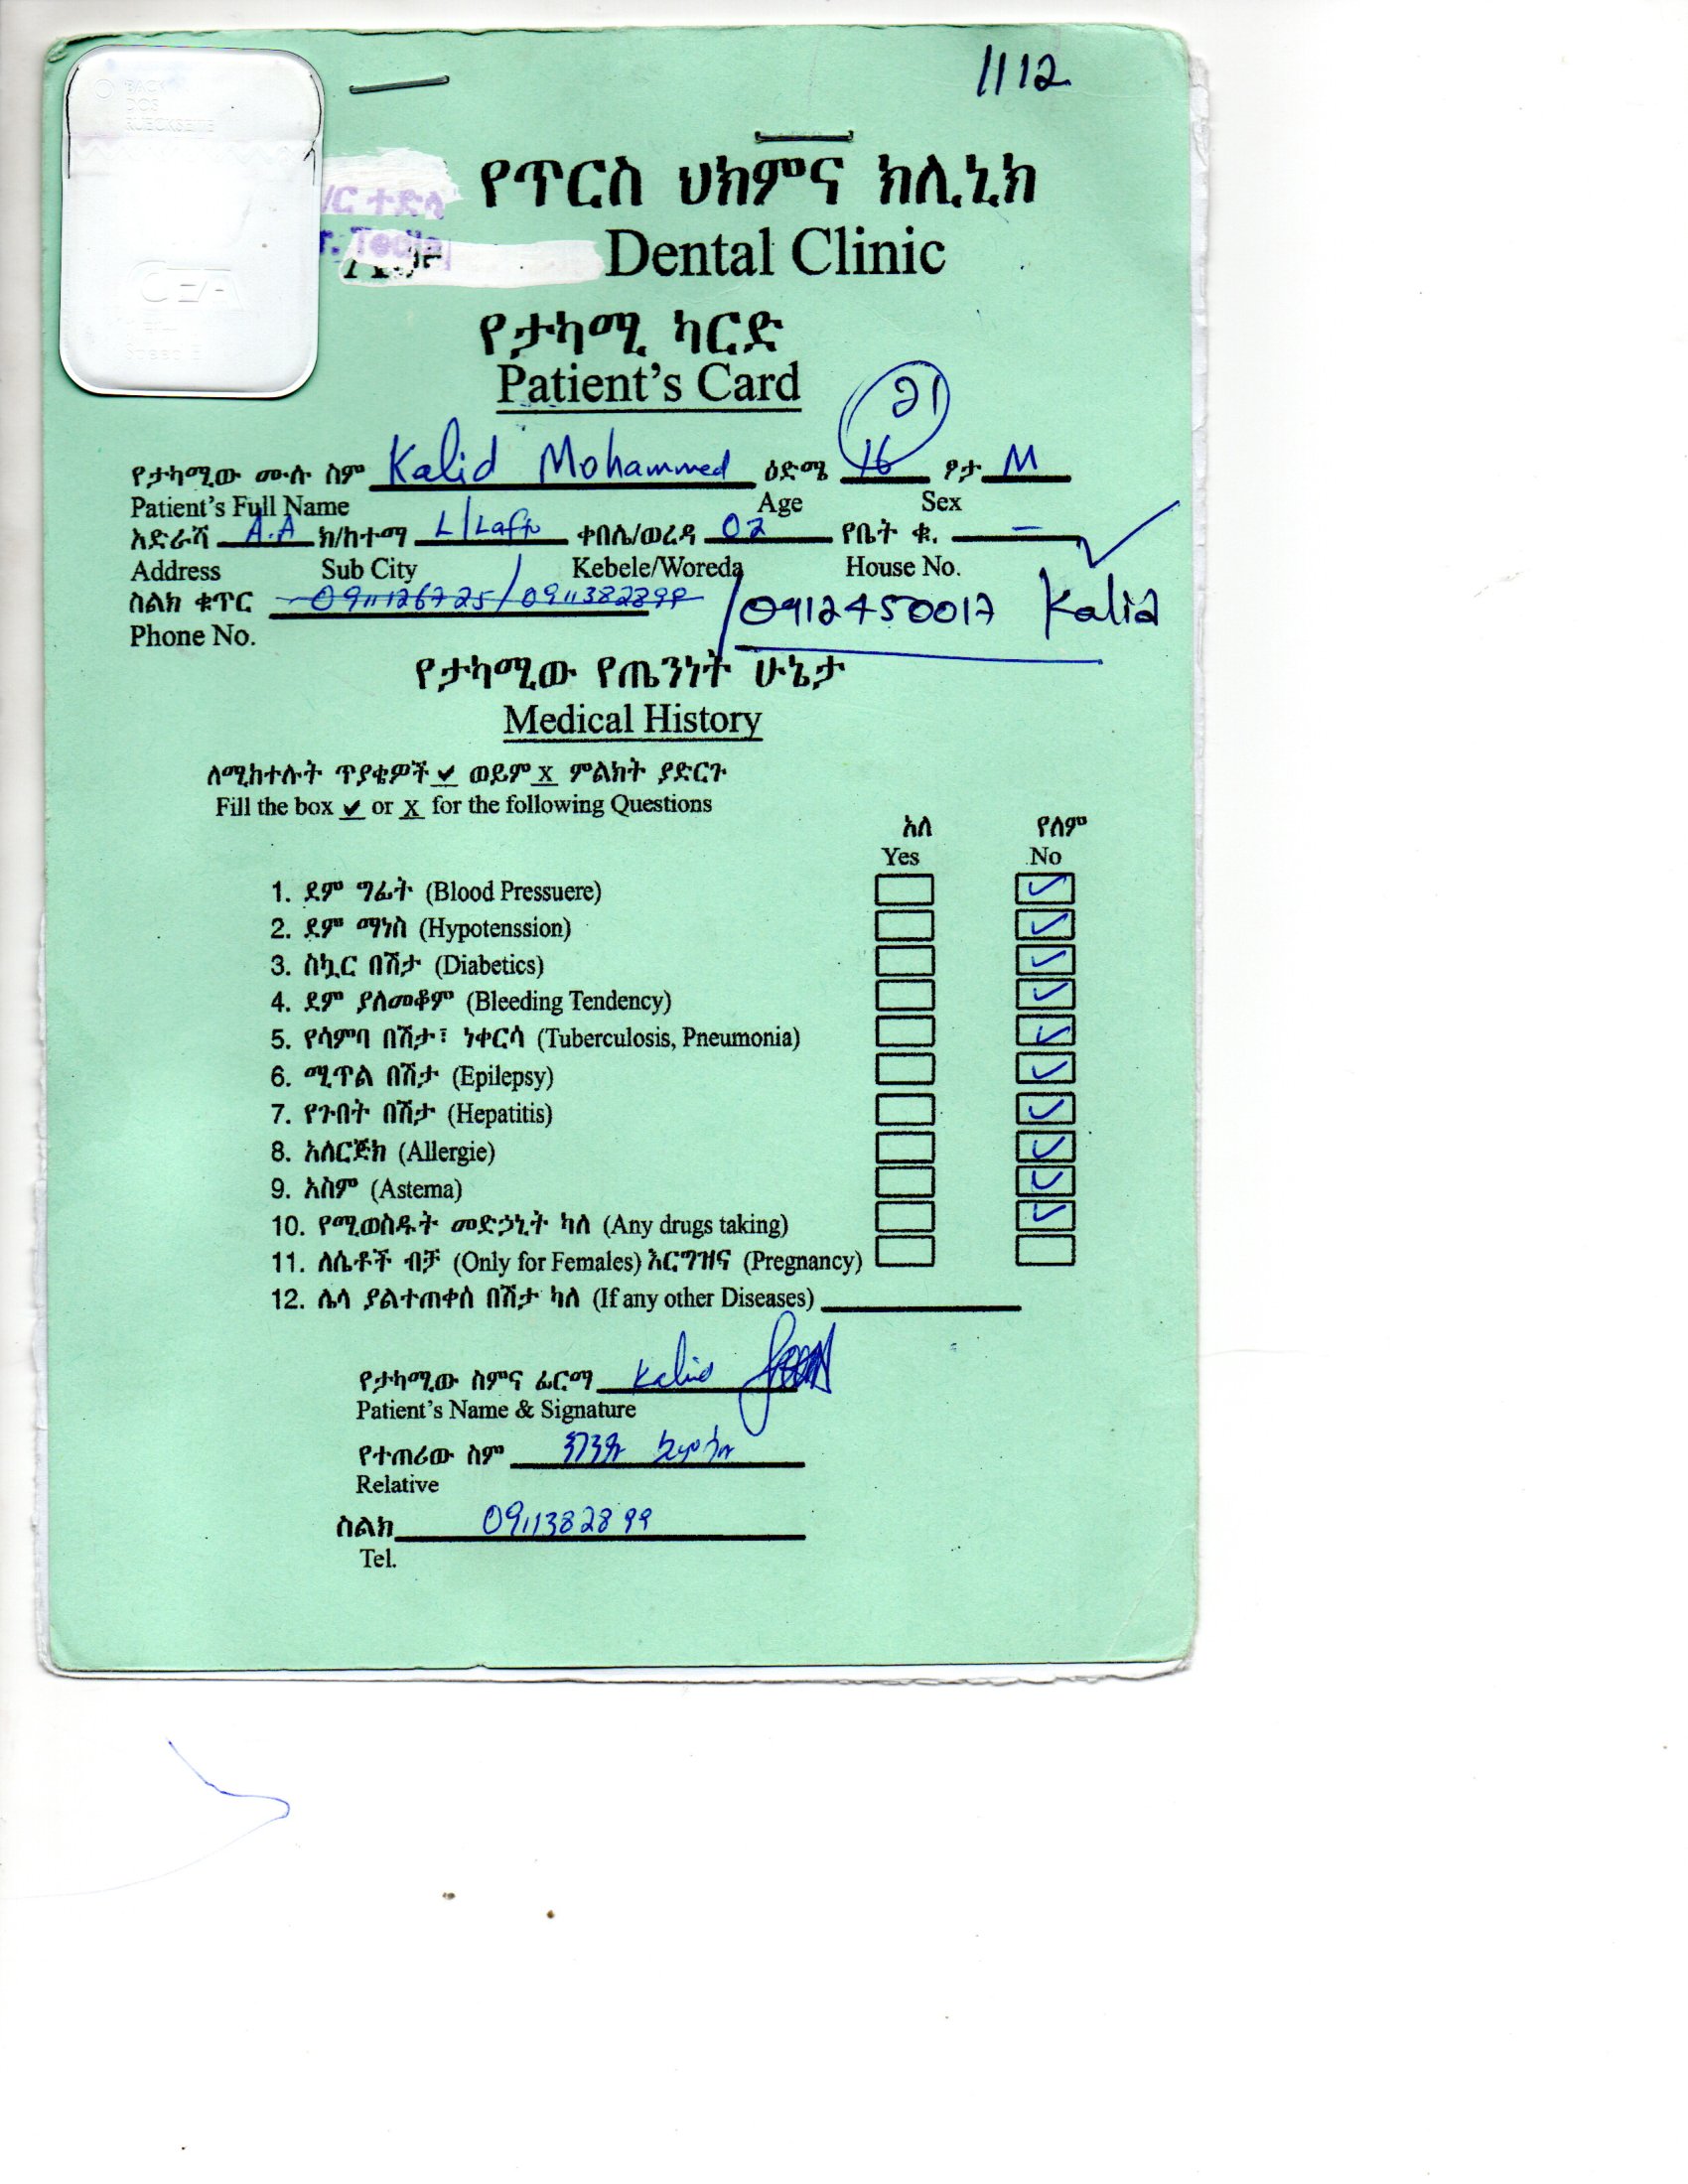 1112
BACK
DOS
RUECKSEITE
/ር ተድላ
የጥርስ ህክምና ክሊኒክ
r. Tedla
Dental Clinic
CEA
የታካሚ ካርድ
Patient's Card
21
የታካሚው ሙሉ ስም Kalid Mohammed ዕድሜ 16 ፆታ M
Patient's Full Name Age Sex
አድራሻ A.A ክ/ከተማ L/Lafto ቀበሌ/ወረዳ 02 የቤት ቁ. –
Address Sub City Kebele/Woreda House No.
ስልክ ቁጥር 0911126725/0911382899 /0912450017 Kalid
Phone No.
የታካሚው የጤንነት ሁኔታ
Medical History
ለሚከተሉት ጥያቄዎች ✔ ወይም X ምልክት ያድርጉ
Fill the box ✔ or X for the following Questions
አለ የለም
Yes No
1. ደም ግፊት (Blood Pressuere) ✓
2. ደም ማነስ (Hypotenssion) ✓
3. ስኳር በሽታ (Diabetics) ✓
4. ደም ያለመቆም (Bleeding Tendency) ✓
5. የሳምባ በሽታ፣ ነቀርሳ (Tuberculosis, Pneumonia) ✓
6. ሚጥል በሽታ (Epilepsy) ✓
7. የጉበት በሽታ (Hepatitis) ✓
8. አለርጅክ (Allergie) ✓
9. አስም (Astema) ✓
10. የሚወስዱት መድኃኒት ካለ (Any drugs taking) ✓
11. ለሴቶች ብቻ (Only for Females) እርግዝና (Pregnancy)
12. ሌላ ያልተጠቀሰ በሽታ ካለ (If any other Diseases)
የታካሚው ስምና ፊርማ Kalid
Patient's Name & Signature
የተጠሪው ስም
Relative
ስልክ 0911382899
Tel.